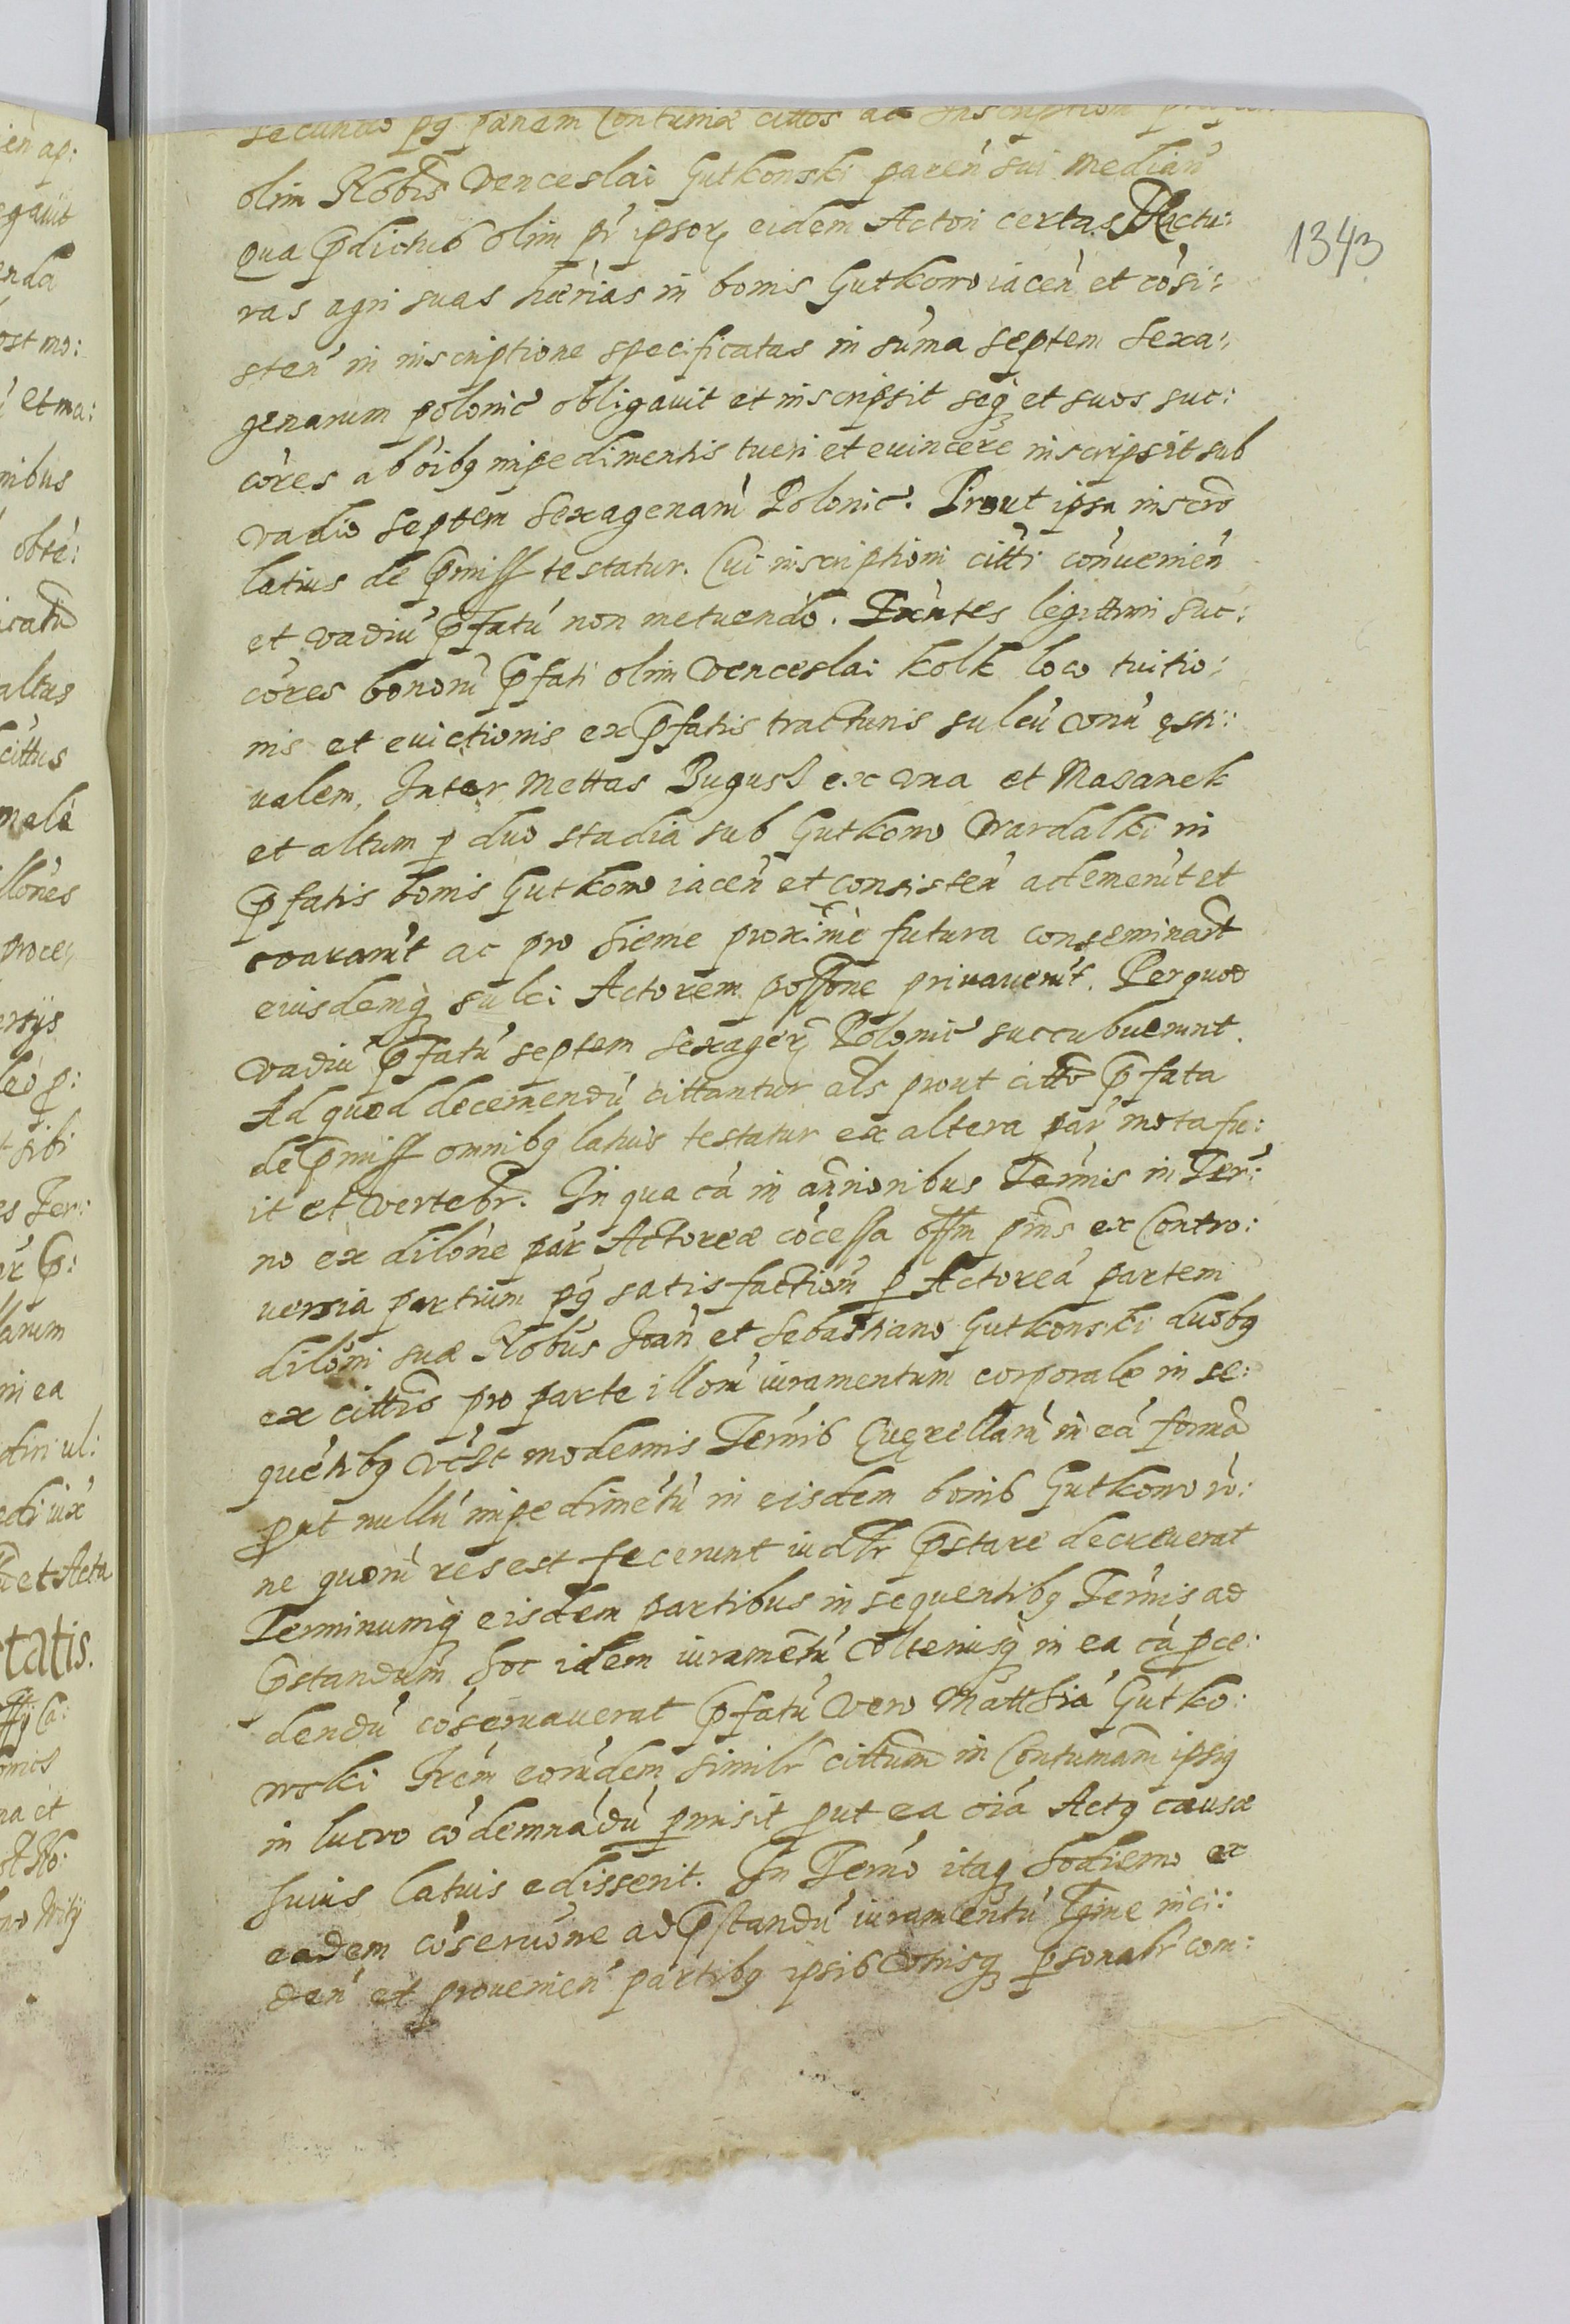 secundo pq pænam Contumæ cittos ad Inscriptiom
olim Nobīs Venceslai Gutkonski paren sui median
qua pdictus olim pr ipsorꝫ eidem Actori certas Tractu:
ras agri suas hærias in bonis Gutkowo iacen et cosi:
sten in inscriptione specificatas in suma septem sexa:
genarum polonic obligavit et inscripsit seqꝫ et suos suc:
cores ab oibꝫ impedimentis tueri et evincere inscripsit sub
vadio septem sexagenaru Polonic. Prout ipsa inscro
latius de pmiss testatur. Cui inscriptioni citti convenien
et vadiu pfatu non metuendo. Txntes legittimi suc:
cores bonoru pfati olim Venceslai kolk loco tuitio:
nis et evictionis ex pfatis tracturis sulcu vonu esti:
valem, Inter Mettas Bugusl ex vna et Mazanek
et altum p duo stadia sub Gutkowo Wardalki in
pfatis bonis Gutkowo iacen et consisten ademerut et
exararut ac pro hieme proxime futura conseminarut
eiusdemqꝫ sulci Actorem possione privaverut. Per quod
vadiu pfatu septem sexagerꝫ Polonic succubuerunt.
Ad quod decernendu cittantur als prout citto pfata
de pmiss omnibꝫ latius testatur ex altera par mota fu:
it et vertebr. In qua ca in anrioribus Termis in Ter:
no ex dilone par Actoreæ cocessa offm pns ex Contro:
versia partium pq satisfactiom p Actorea partem
diloni suæ Nobūs Joan et Sebastiano Gutkonski duobꝫ
ex cittīs pro parte illoru iuramentum corporale in se:
quetibꝫ post modernis Termis Querellaru in ea forma
Put nullu impedimetu in eisdem bonis Gutkowo ro:
ne quoru res est fecerunt iudlr pstare decreverat
Terminumqꝫ eisdem partibus in sequentibꝫ Termis ad
pstandum hoc idem iurametu Vlteriusqꝫ in ea ca pce:
dendu coservaverat pfatu vero Matthia Gutko:
wski frem eorudem similr cittum in Contumam ipsiꝫ
in lucro codemnadu pmisit put ea oia Actꝫ causæ
huius latius edisserit. In Termo itaqꝫ hodierno ex
eadem coservone ad pstandu iuramentu Tgme inci:
den et provenien partibꝫ ipsis Vtrisqꝫ psonalr com:
1343